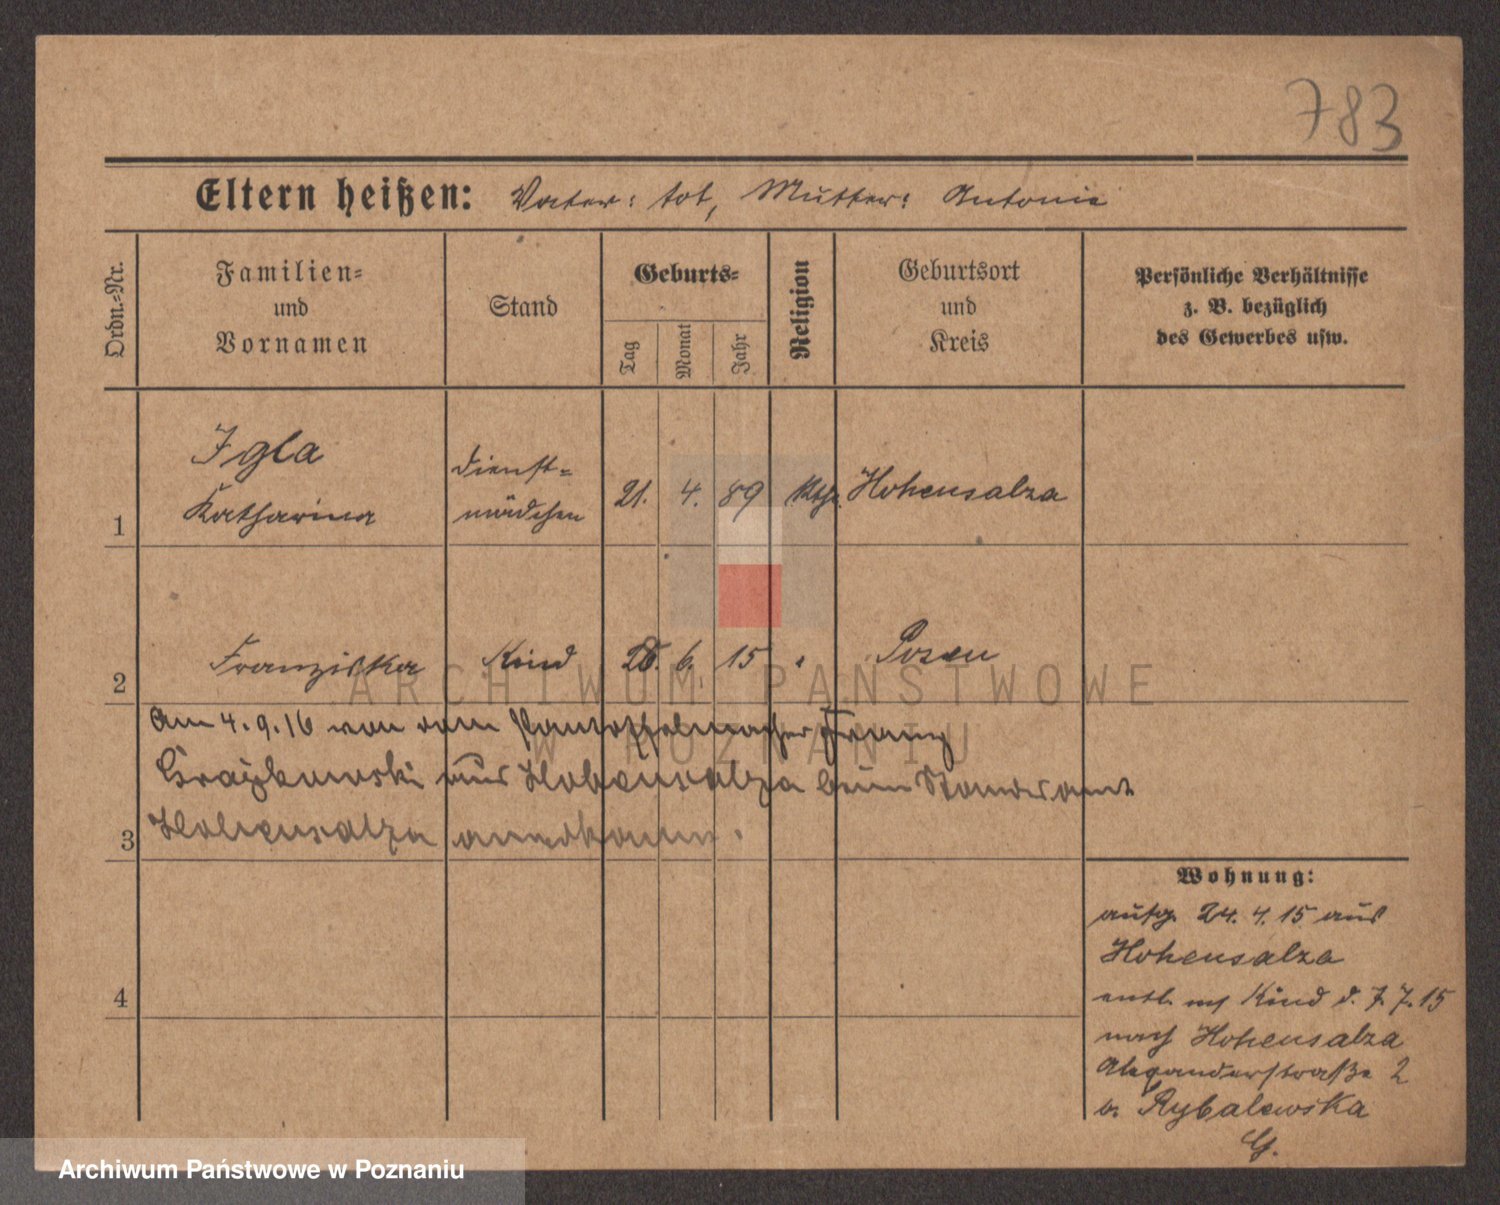 783
Eltern heißen: Vater: tot, Mutter: Antonie
Ordn.=Nr.
Familien=
und
Vornamen
Stand
Geburts=
Tag
Monat
Jahr
Religion
Geburtsort
und
Kreis
Persönliche Verhältnisse
z. B. bezüglich
des Gewerbes usw.
1
Igla
Katharina
Dienst=
mädchen
21. 4. 89 kth. Hohensalza
2
Franziska Kind 26. 6. 15 " Posen
Am 4.9.16 von dem Pantoffelmacher Franz
aus Hohensalza beim Standesamt
3
Hohensalza anerkannt.
4
Wohnung:
aufg. 24. 4. 15 aus
Hohensalza
entl. m/ Kind d. 7. 7. 15
nach Hohensalza
Alexanderstraße 2
b. Rybalewska
G.
ARCHIWUM PAŃSTWOWE
W POZNANIU
Archiwum Państwowe w Poznaniu